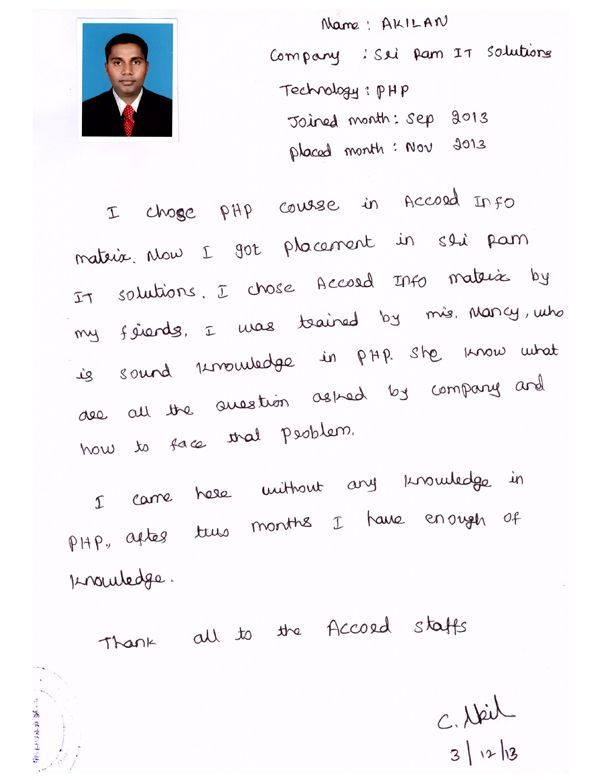 Name : AKILAN
Company : Sri Ram IT Solutions
Technology : PHP
Joined month : Sep 2013
Placed month : Nov 2013
I chose PHP course in Accord Info
matrix. Now I got placement in Sri Ram
IT Solutions. I chose Accord Info matrix by
my friends. I was trained by mis. Nancy, who
is sound knowledge in PHP. She know what
are all the question asked by company and
how to face that problem.
I came here without any knowledge in
PHP., after two months I have enough of
knowledge.
Thank all to the Accord staffs
C. Akil
3/12/13